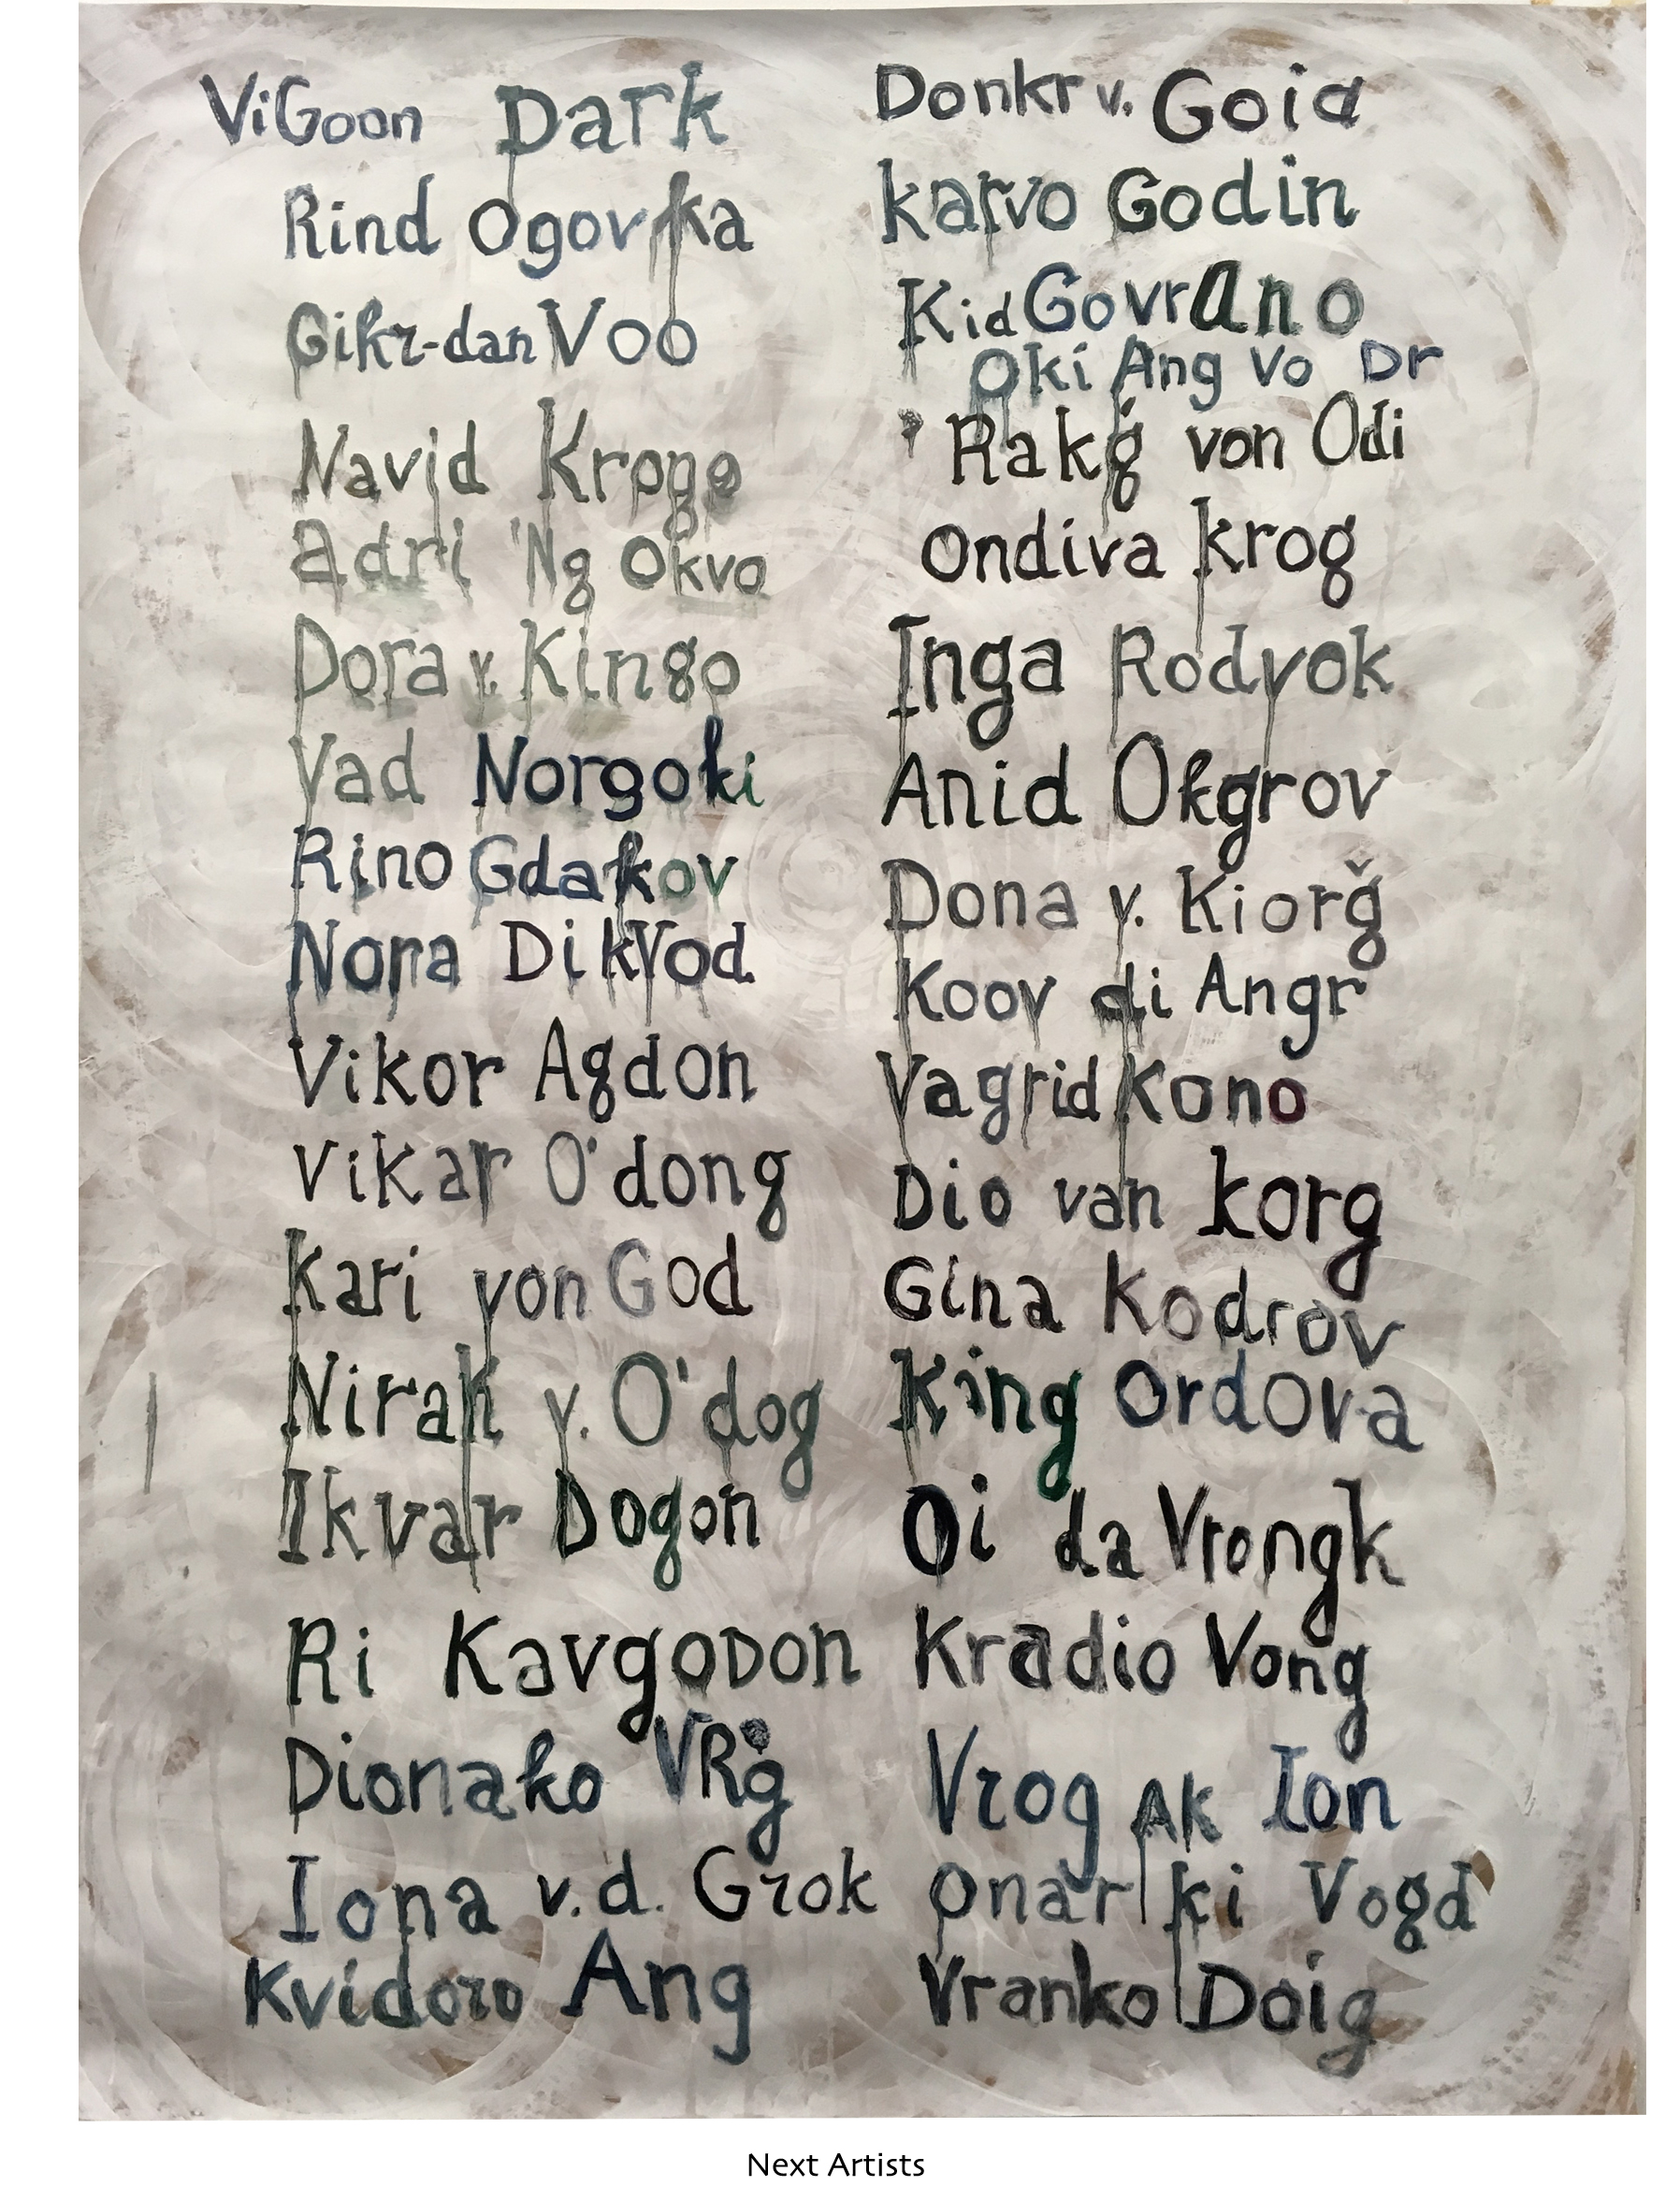 ViGoon Dark
Rind Ogovrka
Gikr-dan Voo
Navid Krogo
Adri 'Ng Okvo
Dora v. Kingo
Vad Norgoki
Rino Gdakov
Nora DikVod
Vikor Agdon
Vikar O'dong
Kari von God
Nirak v. O'dog
Ikvar Dogon
Ri Kavgodon
Dionako VRg
Iona v.d. Grok
Kvidoro Ang
Donkr v. Goia
karvo Godin
Kid Govrano
Oki Ang Vo Dr
Rakg von Odi
Ondiva krog
Inga Rodvok
Anid Okgrov
Dona v. Kiorğ
Koov di Angr
Vagrid Kono
Dio van korg
Gina Kodrov
King Ordova
Oi da Vrongk
Kradio Vong
Vrog AK Ion
Onar ki Vogd
Vranko Doig
Next Artists